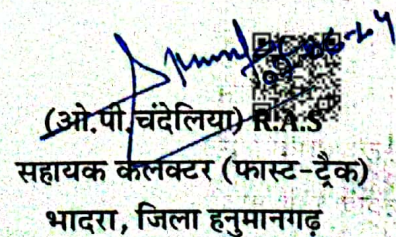 (ओ.पी.चंदेलिया) R.A.S
सहायक कलक्टर (फास्ट-ट्रैक)
भादरा, जिला हनुमानगढ़